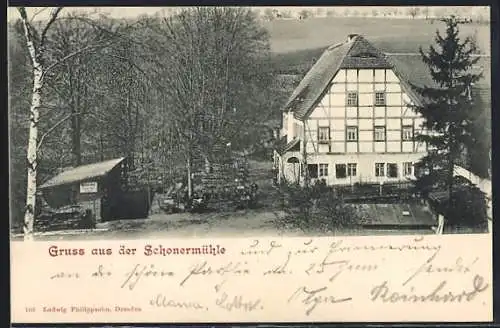 Gruss aus der Schonermühle und zur Erinnerung
an die schöne Parthie am 25 Juni sendet
Mama, Reinhard
Ludwig Philippsohn, Dresden